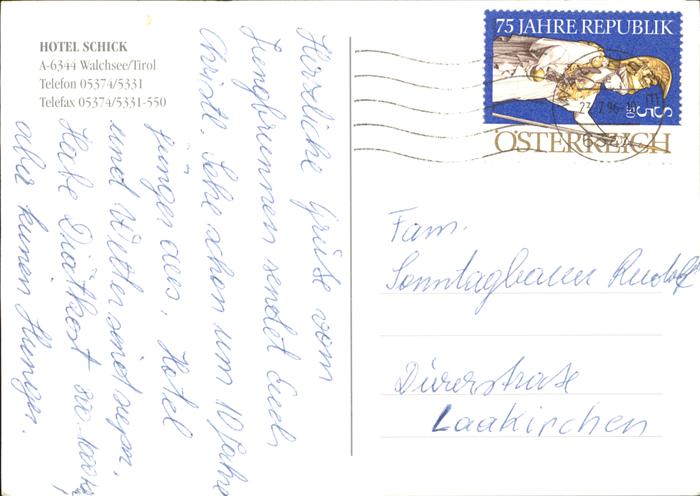 HOTEL SCHICK
A-6344 Walchsee/Tirol
Telefon 05374/5331
Telefax 05374/5331-550
Herzliche Grüße vom
Jungbrunnen sendet Euch
Christl. Sehe schon um 10 Jahre
jünger aus. Hotel
und Wetter sind super.
Habe Diätkost
aber keinen Hunger.
75 JAHRE REPUBLIK
S 5.50
ÖSTERREICH
Fam.
Sonntagbauer Rudolf
Dürerstraße
Laakirchen